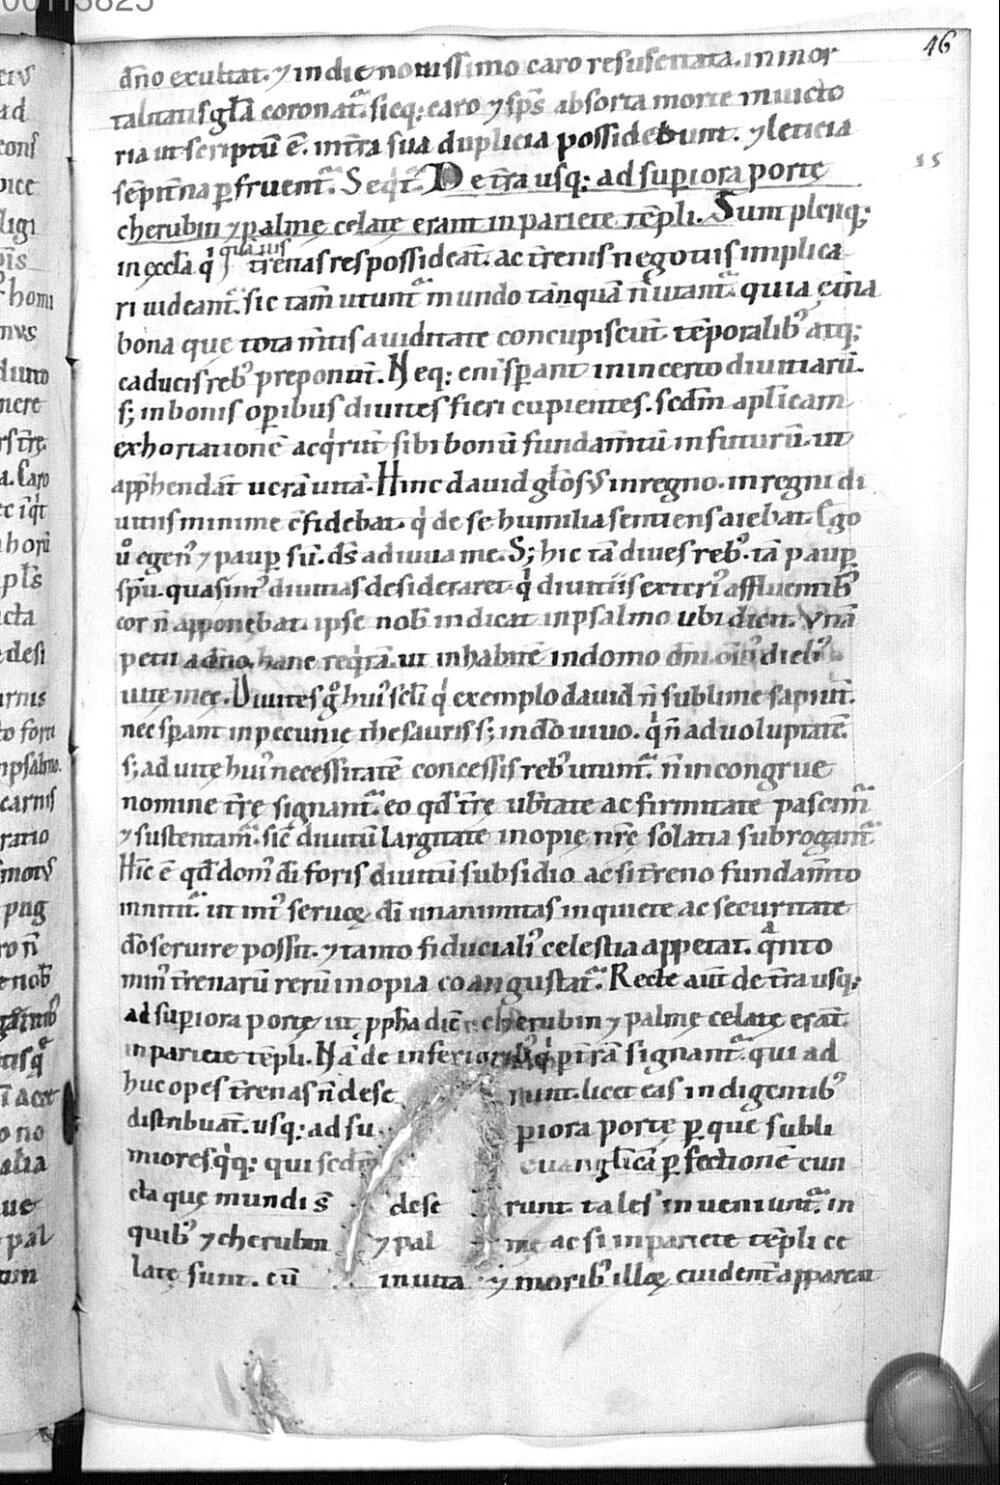 46
dn̄o exultat. ⁊ in die nouissimo caro resuscitata. in mor
talitatis gl̄a coronat᷑. sicq; caro ⁊ sp̄s absorta morte inuicto
ria ut scriptū ē. in tr̄a sua duplicia possidebunt. ⁊ leticia
15
sēpit̄na ꝑfruent᷑. Seqt᷑. De tr̄a usq; ad supiora portę
cherubin ⁊ palmę celatę erant in pariete tēpli. Sunt pleriq;
in ęccl̄a qͥ quāuis tr̄enas res possideāt. ac tr̄enis negotiis implica
ri uideant᷑. sic tam̄ utunt᷑ mundo tanquā n̄ utant᷑. quia et̄na
bona que tota m̄tis auiditate concupiscūt tēporalibꝰ atq;
caducis rebꝰ preponūt. Neq; eni sꝑant in incerto diuitiarū.
s; in bonis oꝑibus diuites fieri cupientes. scd̄m apl̄icam
exhortationē acqͥrūt sibi bonū fundam̄tū in futurū. ut
app̄hendāt uerā uitā. Hinc dauid gl̄osꝰ in regno. in regni di
uitiis minime c̄fidebat. qͥ de se humilia sentiens aiebat. Ego
ů egenꝰ ⁊ pauꝑ sū. ds̄ adiuua me. S; hic tā diues rebꝰ. tā pauꝑ
sp̄u. quas int̄ diuitias desideraret qͥ diuitiis exteriꝰ affluentibꝰ
cor n̄ apponebat. ipse nob̄ indicat in psalmo ubi dicit. Vnā
petii a dn̄o. hanc reqͥrā. ut inhabitē in domo dn̄i oībꝰ diebꝰ
uitę meę. Diuites g̊ huiꝰ sc̄li qͥ exemplo dauid n̄ sublime sapiūt.
nec sꝑant in pecunię thesauris s; in do uiuo. qͥ n̄ ad uoluptatē.
s; ad uitę huiꝰ necessitatē concessis rebꝰ utunt᷑. n̄ incongrue
nomine tr̄ę signant᷑. eo qd̄ tr̄ę ub̄tate ac firmitate pascim᷑
⁊ sustentam᷑. sic̄ diuitū largitate inopię nr̄ę solatia subrogant᷑
Hic̄ ē qd̄ domꝰ di foris diuitū subsidio ac si tr̄eno fundam̄to
innitit᷑. ut int̄ seruoꝝ di unanimitas in quiete ac securitate
do seruire possit. ⁊ tanto fiducialiꝰ celestia appetat. qͣnto
min̄ tr̄enarū rerū inopia coangustat᷑. Recte aut̄ de tr̄a usq;
ad supiora portę ut pph̄a dic̄ cherubin ⁊ palmę celatę erāt
in pariete tēpli. Nā de inferioribꝰ qͥ p tr̄ā signant᷑. qui ad
huc opes tr̄enas n̄ dese runt. licet eas indigentibꝰ
distribuāt. usq; ad su ꝑiora portę ꝑ que subli
miores qͥq; qui scd̄m euangl̄icā ꝑfectionē cun
cta que mundi s̄ dese runt tales inueniunt᷑. in
quibꝰ ⁊ cherubin ⁊ pal mę ac si in pariete tēpli ce
latę sunt. cū in uita ⁊ moribꝰ illoꝝ euident̄ appareat